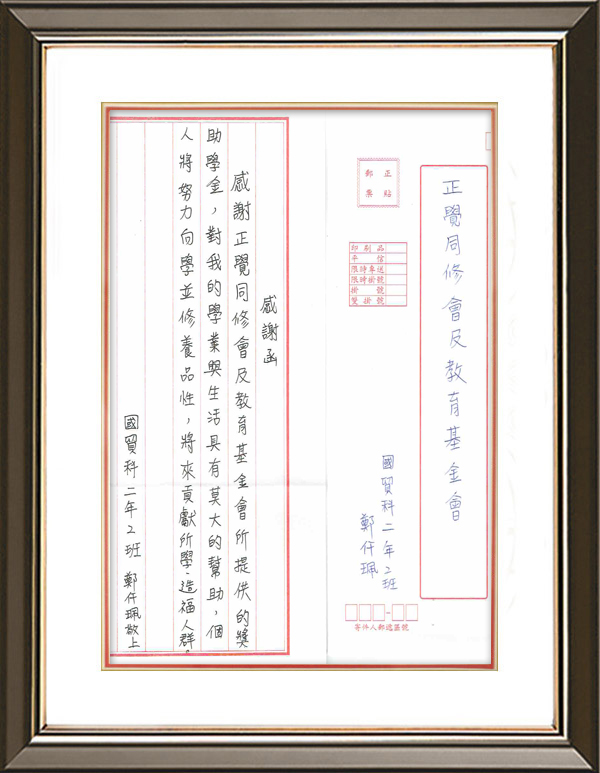 正覺同修會及教育基金會
正貼
郵票
印刷品
平信
限時專送
限時掛號
掛號
雙掛號
國貿科二年2班
鄭仟珮
寄件人郵遞區號
感謝函
感謝正覺同修會及教育基金會所提供的獎
助學金，對我的學業與生活具有莫大的幫助，個
人將努力向學並修養品性，將來貢獻所學，造福人群。
國貿科二年2班 鄭仟珮敬上